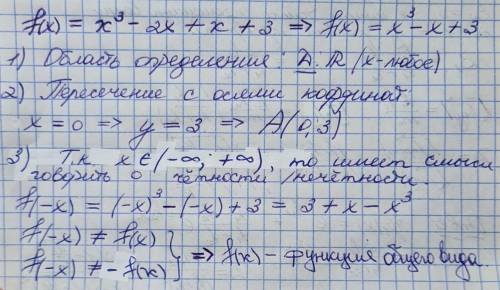 f(x) = x³ - 2x + x + 3 => f(x) = x³ - x + 3.
1) Область определения: D: R (x-любое)
2) Пересечение с осями координат:
x = 0 => y = 3 => A(0; 3)
3) Т.к. x∈(-∞; +∞), то имеет смысл
говорить о чётности/нечётности.
f(-x) = (-x)³ - (-x) + 3 = 3 + x - x³
f(-x) ≠ f(x)
f(-x) ≠ -f(x) } => f(x) - функция общего вида.